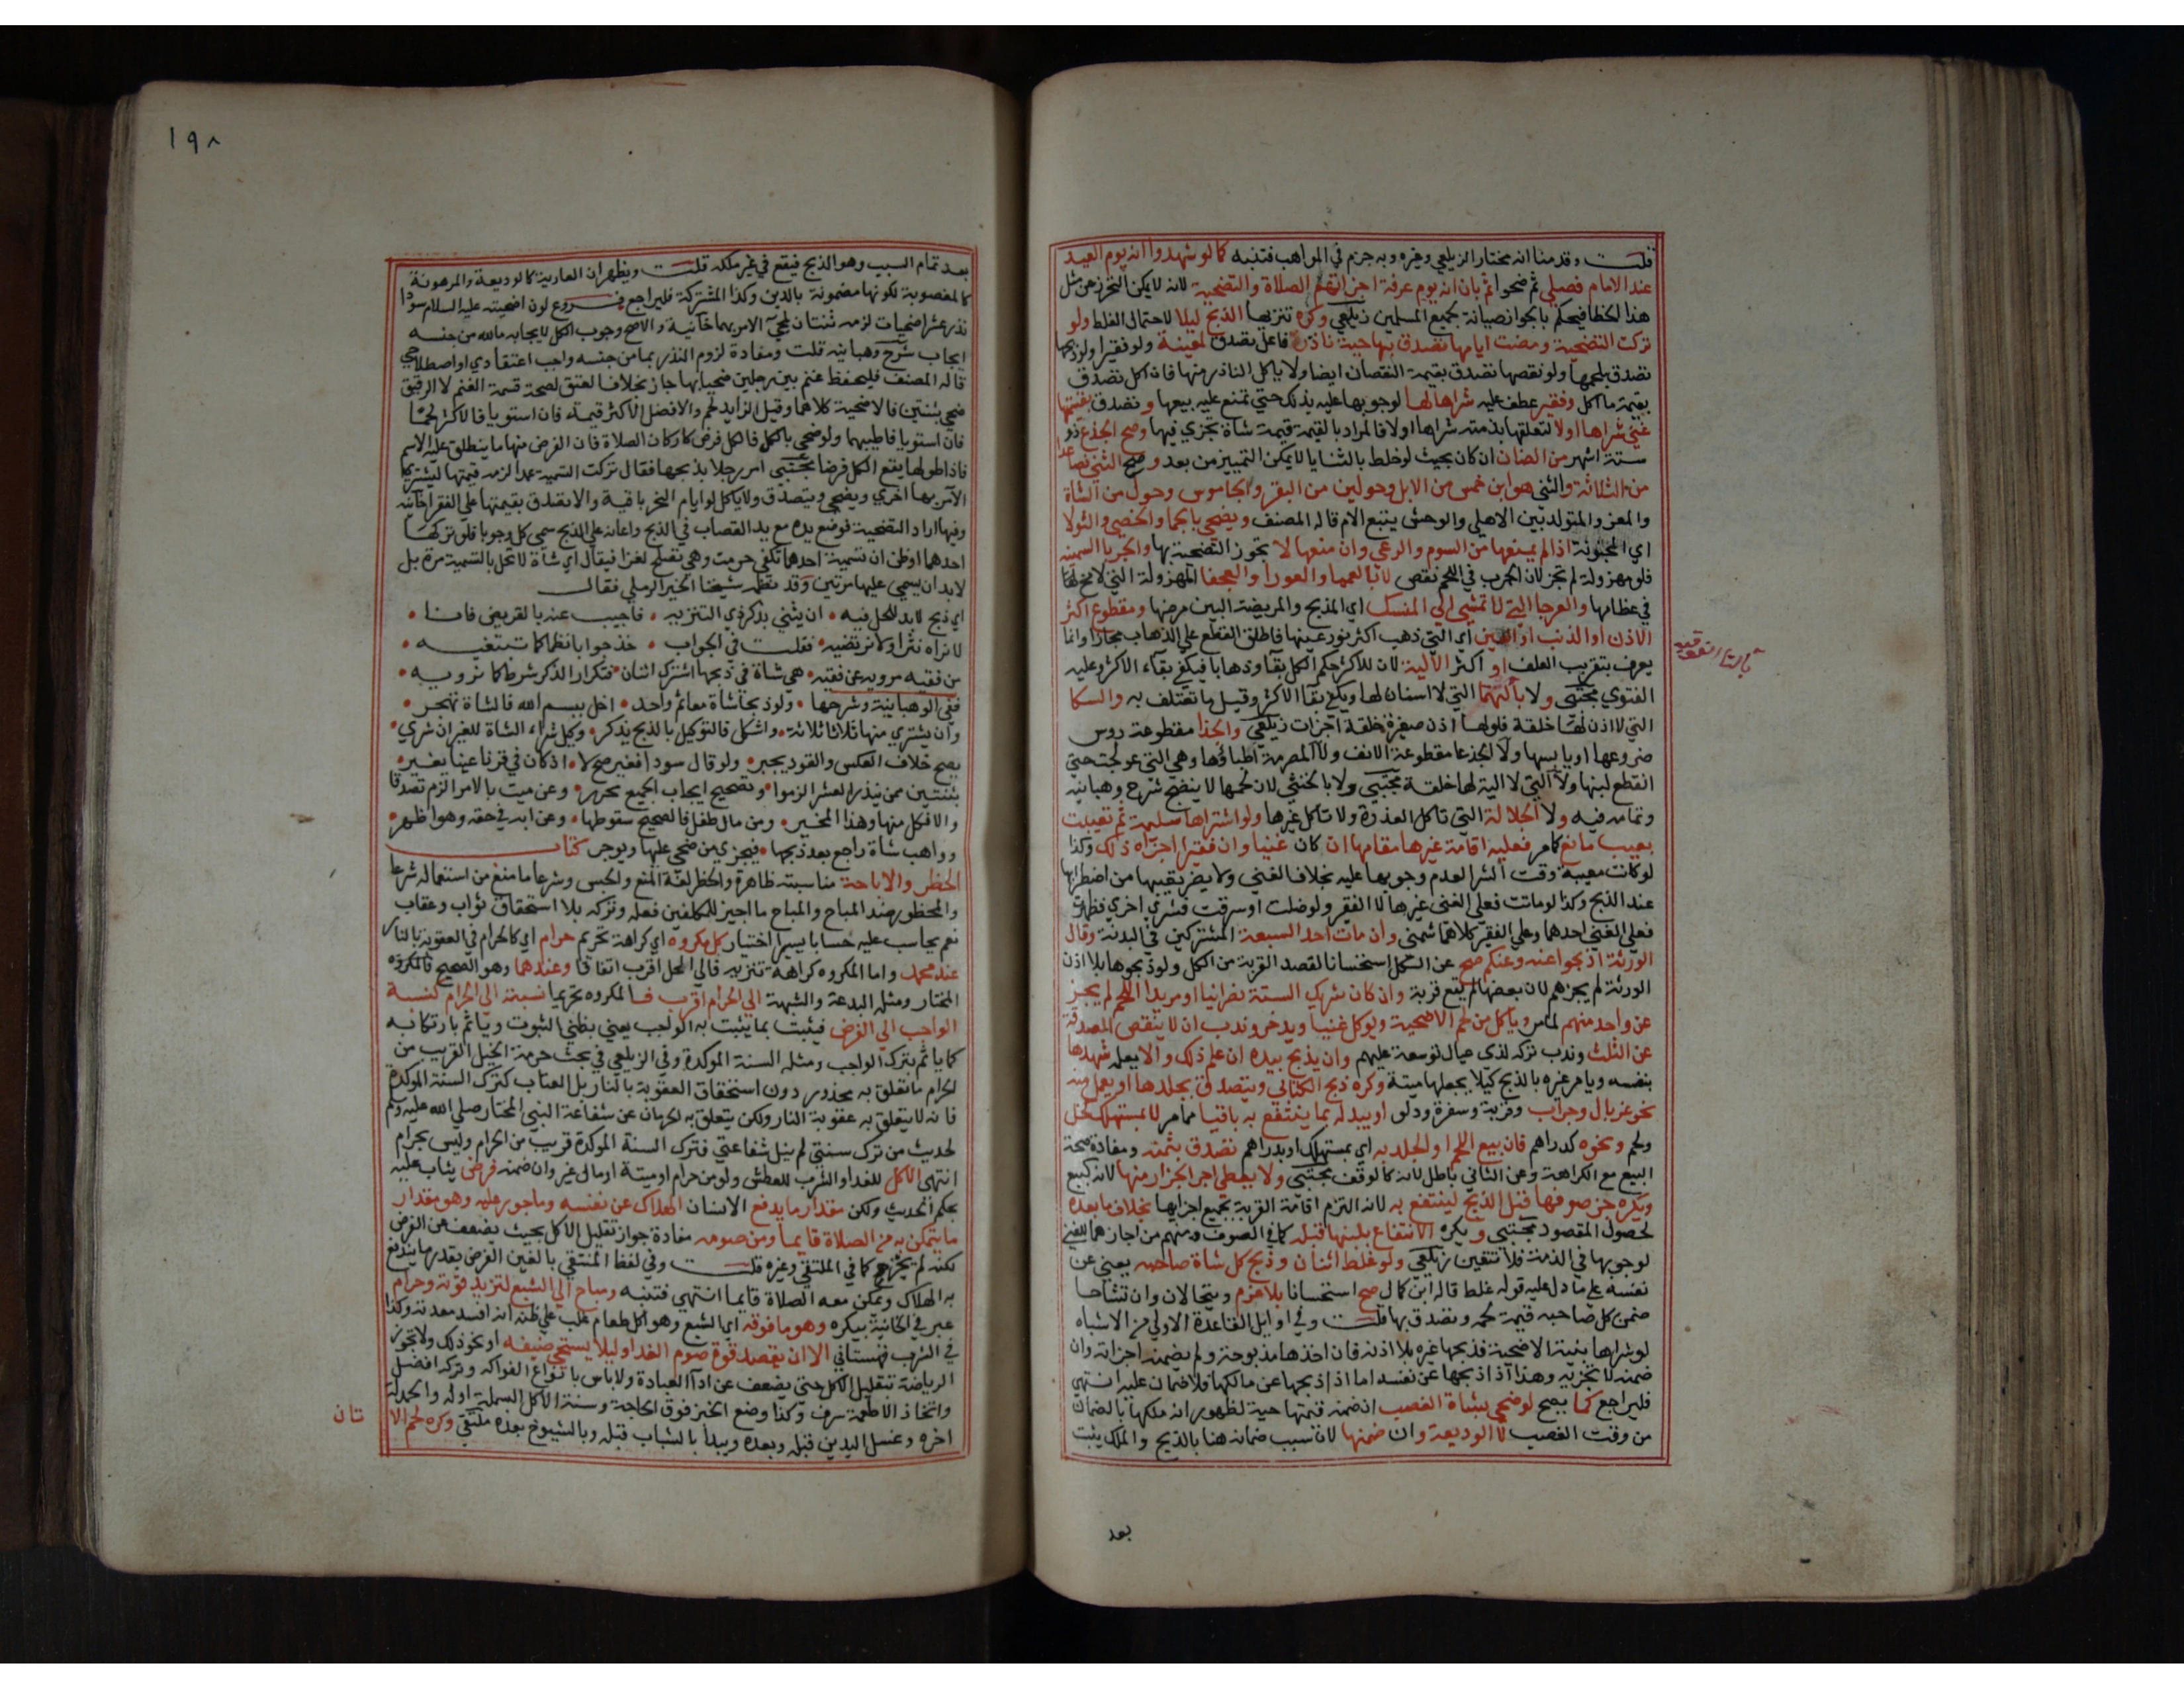 قلت وقدمنا انه مختار الزيلعي وغيره وبه جزم في المواهب فتنبه كما لو شهدوا انه يوم العيد
عند الامام فصلي ثم ضحوا ثم بان انه يوم عرفة اجزاتهم الصلاة والتضحية لانه لا يمكن التحرز عن مثل
هذا الخطا فيحكم بالجواز صيانة لجميع المسلمين زيلعي وكره تنزيها الذبح ليلا لاحتمال الغلط ولو
تركت التضحية ومضت ايامها تصدق بها حية ناذر فاعل تصدق لمعينة ولو فقيرا ولو ذبحها
تصدق بلحمها ولو نقصها تصدق بقيمة النقصان ايضا ولا ياكل الناذر منها فان اكل تصدق
بقيمة ما اكل وفقير عطف عليه شراها لها لوجوبها عليه بذلك حتي تمنع عليه بيعها وتصدق بقيمتها
غني شراها اولا لتعلقها بذمته شراها اولا فالمراد بالقيمة قيمة شاة تجزي فيها وصح الجذع ذو
ستة اشهر من الضان ان كان بحيث لو خلط بالثنايا لا يمكن التمييز من بعد وصح الثني فصاعدا
من الثلاثة والثني هو ابن خمس من الابل وحولين من البقر والجاموس وحول من الشاة
والمعز والمتولد بين الاهلي والوحش يتبع الام قاله المصنف ويضحي بالجما والخصي والثولا
اي المجنونة اذا لم يمنعها من السوم والرعي وان منعها لا تجوز التضحية بها والجربا السمينة
فلو مهزولة لم تجز لان الجرب في اللحم نقص لا بالعميا والعورا والعجفا المهزولة التي لا مخ لها
في عظامها والعرجا التي لا تمشي الي المنسك اي المذبح والمريضة البين مرضها ومقطوع اكثر
الاذن او الذنب او العين اي التي ذهب اكثر نور عينها فاطلق القطع علي الذهاب مجازا وانما
يعرف بتقريب العلف او اكثر الالية لان للاكثر حكم الكل بقا وذهابا فيكفي بقاء الاكثر وعليه
الفتوي مجتبي ولا بالهتما التي لا اسنان لها ويكفي بقا الاكثر وقيل ما تعتلف به والسكا
التي لا اذن لها خلقة فلو لها اذن صغيرة خلقة اجزات زيلعي والجذا مقطوعة رءوس
ضروعها او يابسها ولا الجدعا مقطوعة الانف ولا المصرمة اطباؤها وهي التي عولجت حتي
انقطع لبنها ولا التي لا الية لها خلقة مجتبي ولا بالخنثي لان لحمها لا ينضج شرح وهبانيه
وتمامه فيه ولا الجلالة التي تاكل العذرة ولا تاكل غيرها ولو اشتراها سليمة ثم تعيبت
بعيب مانع كما مر فعليه اقامة غيرها مقامها ان كان غنيا وان فقيرا اجزاه ذلك وكذا
لو كانت معيبة وقت الشرا لعدم وجوبها عليه بخلاف الغني ولا يضر تعيبها من اضطرابها
عند الذبح وكذا لو ماتت فعلي الغني غيرها لا الفقير ولو ضلت او سرقت فشري اخري فظهرت
فعلي الغني احدهما وعلي الفقير كلاهما شمني وان مات احد السبعة المشتركين في البدنة وقال
الورثة اذبحوا عنه وعنكم صح عن الكل استحسانا لقصد القربة من الكل ولو ذبحوها بلا اذن
الورثة لم يجزهم لان بعضها لم يقع قربة وان كان شريك الستة نصرانيا او مريدا اللحم لم يجز
عن واحد منهم لما مر وياكل من لحم الاضحية ويوكل غنيا ويدخر وندب ان لا ينقص الصدقة
عن الثلث وندب تركه لذي عيال توسعة عليهم وان يذبح بيده ان علم ذلك والا يعلمه شهدها
بنفسه ويامر غيره بالذبح كيلا يجعلها ميتة وكره ذبح الكتابي ويتصدق بجلدها او يعمل منه
نحو غربال وجراب وقربة وسفرة ودلو او يبدله بما ينتفع به باقيا مما مر لا بمستهلك كخل
ولحم ونحوه كدراهم فان بيع اللحم او الجلد به اي بمستهلك او بدراهم تصدق بثمنه ومفاده صحة
البيع مع الكراهة وعن الثاني باطل لانه كالوقف مجتبي ولا يعطي اجر الجزار منها لانه كبيع
ويكره جز صوفها قبل الذبح لينتفع به لانه التزم اقامة القربة بجميع اجزايها بخلاف ما بعده
لحصول المقصود مجتبي ويكره الانتفاع بلبنها قبله كما في الصوف ومنهم من اجازهما للغني
لوجوبها في الذمة فلا تتعين زيلعي ولو غلط اثنان وذبح كل شاة صاحبه يعني عن
نفسه علي ما دل عليه قوله غلط قاله ابن كمال صح استحسانا بلا غرم ويتحالان وان تشاحا
ضمن كل صاحبه قيمة لحمه وتصدق بها قلت وفي اوايل القاعدة الاولي من الاشباه
لو شراها بنية الاضحية فذبحها غيره بلا اذنه فان اخذها مذبوحة ولم يضمنه اجزاته وان
ضمنه لا تجزيه وهذا اذا ذبحها عن نفسه اما اذا ذبحها عن مالكها فلا ضمان عليه انتهي
فليراجع كما يصح لو ضحي بشاة الغصب ان ضمنه قيمتها حية لظهور انه ملكها بالضمان
من وقت الغصب لا الوديعة وان ضمنها لان سبب ضمانه هنا بالذبح والملك يثبت
بعد
١٩٨
بعد تمام السبب وهو الذبح فيقع في غير ملكه قلت ويظهر ان العارية كالوديعة والمرهونة
كالمغصوبة لكونها مضمونة بالدين وكذا المشتركة فليراجع فروع لون اضحيته عليه السلام سودا
نذر عشر اضحيات لزمه ثنتان لمجيء الاثر بهما خانية والاصح وجوب الكل لايجابه ما لله من جنسه
ايجاب شرح وهبانيه قلت ومفاده لزوم النذر بما من جنسه واجب اعتقادي او اصطلاحي
قاله المصنف فليحفظ غنم بين رجلين ضحيا بها جاز بخلاف العتق لصحة قسمة الغنم لا الرقيق
ضحي بثنتين فالاضحية كلاهما وقيل الزايد لحم والافضل الاكثر قيمة فان استويا فالاكثر لحما
فان استويا فاطيبهما ولو ضحي بالكل فالكل فرض كاركان الصلاة فان الفرض منها ما ينطلق عليه الاسم
فاذا طولها يقع الكل فرضا مجتبي امر رجلا بذبحها فقال تركت التسمية عمدا لزمه قيمتها ليشتري
الامر بها اخري ويضحي ويتصدق ولا ياكل لو ايام النحر باقية والا تصدق بقيمتها علي الفقرا خانيه
وفيها اراد التضحية فوضع يده مع يد القصاب في الذبح واعانه علي الذبح سمي كل وجوبا فلو تركها
احدهما او ظن ان تسمية احدهما تكفي حرمت وهي تصلح لغزا فيقال اي شاة لا تحل بالتسمية مرة بل
لا بد ان يسمي عليها مرتين وقد نظمه شيخنا الخير الرملي فقال
اي ذبح لا بد للحل فيه • ان يثني بذكر ذي التنزيه • فاجيب عنه بالقريض فانا •
لا نراه نثرا ولا نرتضيه • فقلت في الجواب • خذ جوابا نظما كما تبتغيه •
من فقيه مرويه عن فقيه • هي شاة في ذبحها اشترك اثنان • فتكرار الذكر شرط كما نرويه •
ففي الوهبانية وشرحها • ولو ذبحا شاة معا ثم واحد • اخل ببسم الله فالشاة تهجر •
وان يشتري منها ثلاثا ثلاثة • واشكل فالتوكيل بالذبح يذكر • وكيل شراء الشاة للغير ان شري •
يصح خلاف العكس والقود يجبر • ولو قال سودا فغير صح لا • اذ كان في قرنا عينا يغير •
بثنتين ممن ينذر العشر الزموا • وتصحيح ايجاب الجميع محرر • وعن ميت بالامر الزم تصدقا
والا فكل منها وهذا المخير • ومن مال طفل فالصحيح سقوطها • وعن ابه في حقه وهو اظهر •
وواهب شاة راجع بعد ذبحها • فيجزي من ضحي عليها ويوجر كتاب
الحظر والاباحة مناسبته ظاهرة والحظر لغة المنع والحبس وشرعا ما منع من استعماله شرعا
والمحظور ضد المباح والمباح ما اجيز للمكلفين فعله وتركه بلا استحقاق ثواب وعقاب
نعم يحاسب عليه حسابا يسيرا اختيار كل مكروه اي كراهة تحريم حرام اي كالحرام في العقوبة بالنار
عند محمد واما المكروه كراهة تنزيه فالي الحل اقرب اتفاقا وعندهما وهو الصحيح فالمكروه
المختار ومثله البدعة والشبهة الي الحرام اقرب فالمكروه تحريما نسبته الي الحرام كنسبة
الواجب الي الفرض فيثبت بما يثبت به الواجب يعني بظني الثبوت وياثم بارتكابه
كما ياثم بترك الواجب ومثله السنة الموكدة وفي الزيلعي في بحث حرمة الخيل القريب من
الحرام ما تعلق به محذور دون استحقاق العقوبة بالنار بل العتاب كترك السنة الموكدة
فانه لا يتعلق به عقوبة النار ولكن يتعلق به الحرمان عن شفاعة النبي المختار صلي الله عليه وسلم
لحديث من ترك سنتي لم ينل شفاعتي فترك السنة الموكدة قريب من الحرام وليس بحرام
انتهي الاكل للغدا والشرب للعطش ولو من حرام او ميتة او مال غير وان ضمنه فرض يثاب عليه
بحكم الحديث ولكن مقدار ما يدفع الانسان الهلاك عن نفسه وماجور عليه وهو مقدار
ما يتمكن به من الصلاة قايما ومن صومه مفاده جواز تقليل الاكل بحيث يضعف عن الفرض
لكنه لم يجز كما في الملتقي وغيره قلت وفي لفظ الملتقي بالغين الفرض بقدر ما يندفع
به الهلاك ويمكن معه الصلاة قايما انتهي فتنبه ومباح الي الشبع لتزيد قوته وحرام
عبر في الخانية بيكره وهو ما فوقه اي الشبع وهو اكل طعام غلب علي ظنه انه افسد معدته وكذا
في الشرب قهستاني الا ان يقصد قوة صوم الغد او ليلا يستحي ضيفه او نحو ذلك ولا تجوز
الرياضة بتقليل الاكل حتي يضعف عن ادا العبادة ولا باس بانواع الفواكه وتركه افضل
واتخاذ الاطعمة سرف وكذا وضع الخبز فوق الحاجة وسنة الاكل البسملة اوله والحمدلة
اخره وغسل اليدين قبله وبعده ويبدا بالشباب قبله وبالشيوخ بعده ملتقي وكره لحم الا
تان